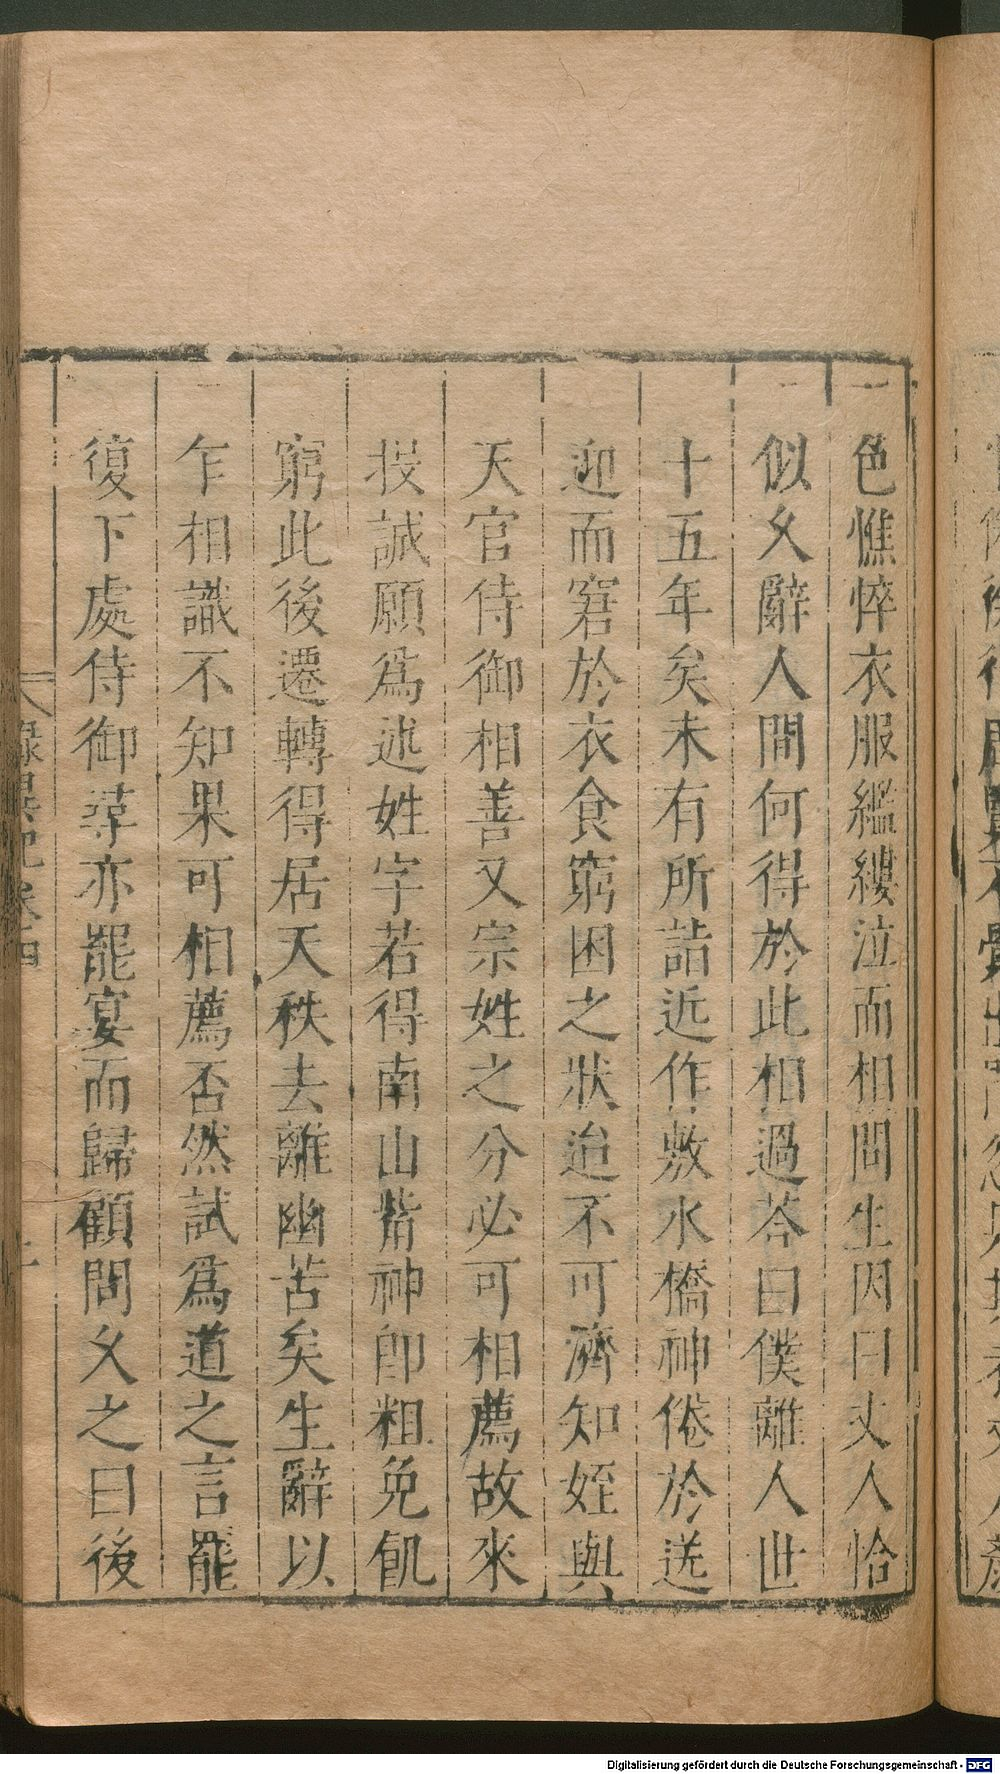 色憔悴衣服繿縷泣而相問生因曰丈人恰
似久辭人間何得於此相過荅曰僕離人世
十五年矣未有所詣近作敷水橋神倦於送
迎而窘於衣食窮困之狀迨不可濟知姪與
天官侍御相善又宗姓之分必可相薦故來
投誠願爲述姓字若得南山觜神即粗免飢
窮此後遷轉得居天秩去離幽苦矣生辭以
乍相識不知果可相薦否然試爲道之言罷
復下處侍御尋亦罷宴而歸顧問久之曰後
錄異記卷四
Digitalisierung gefördert durch die Deutsche Forschungsgemeinschaft - DFG